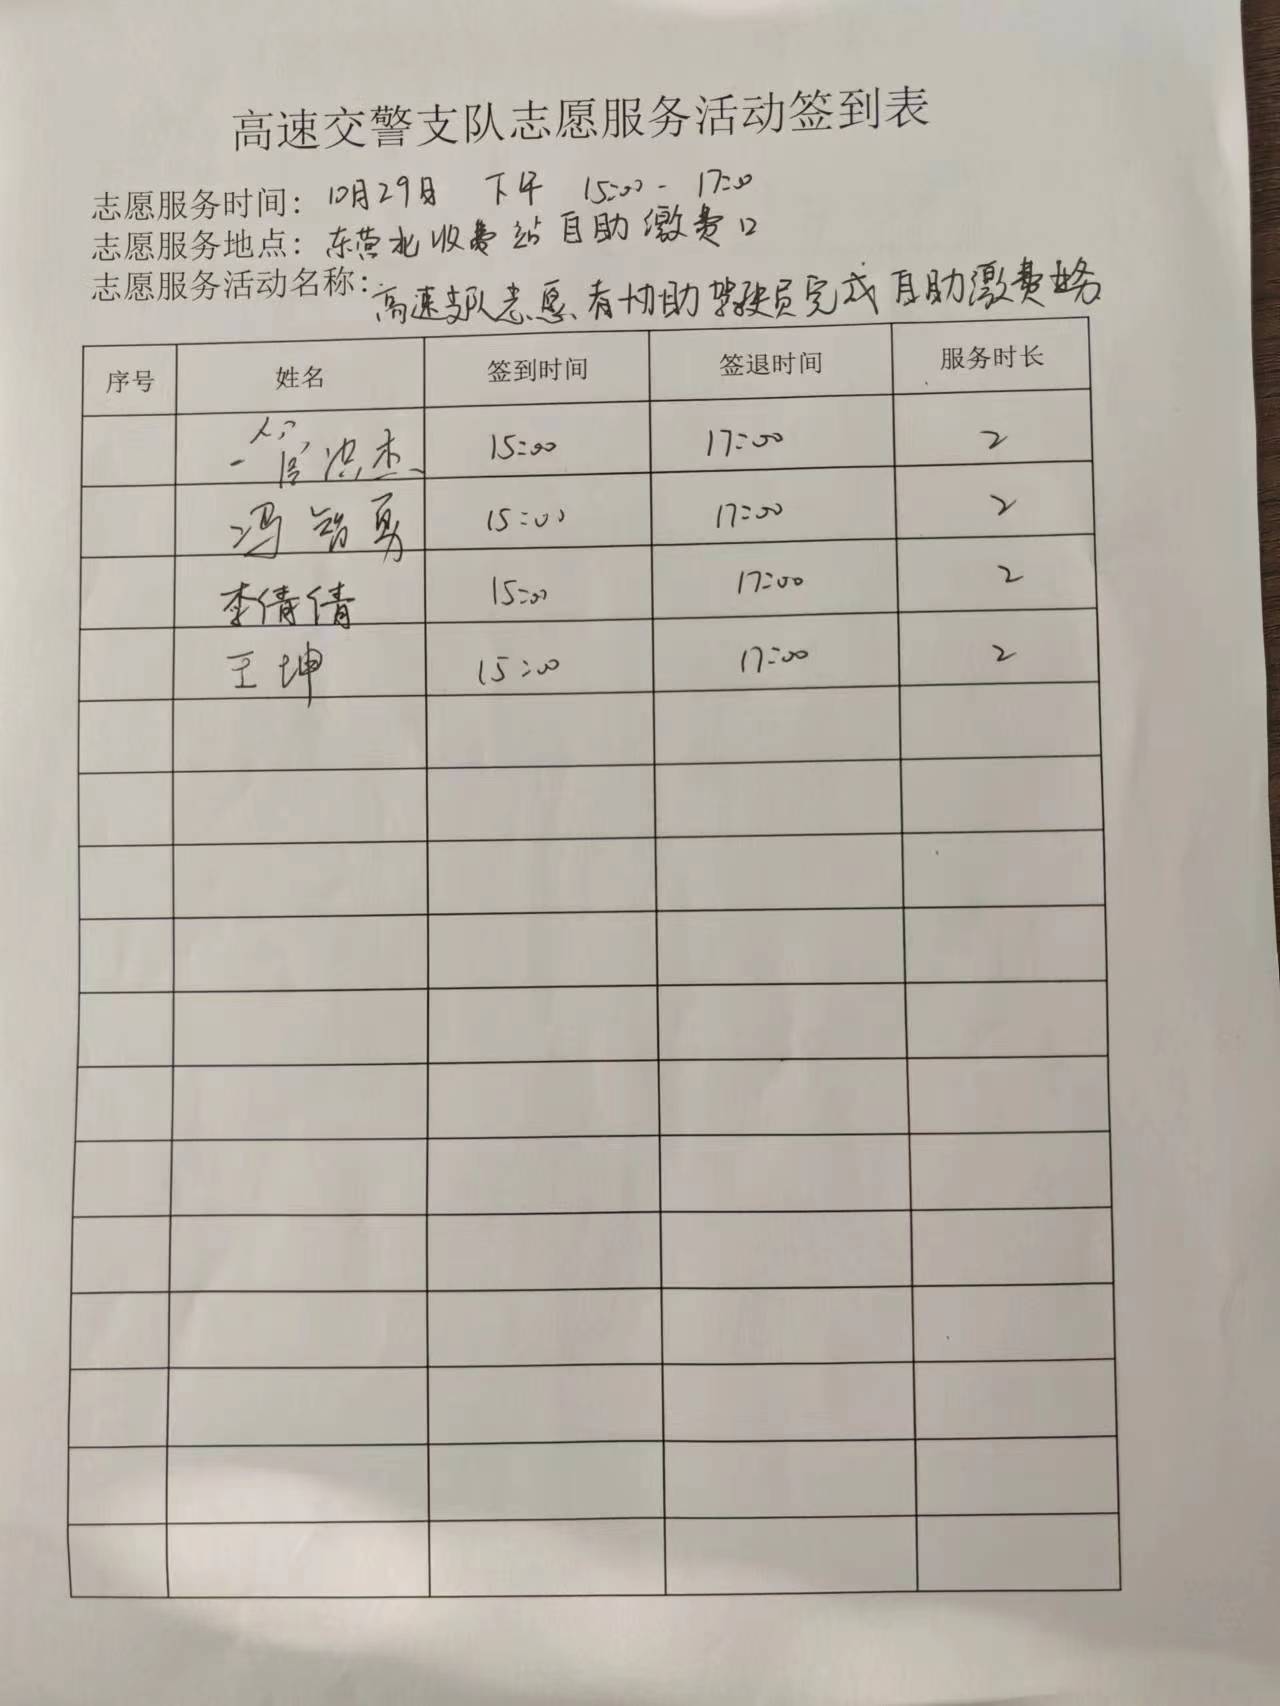 高速交警支队志愿服务活动签到表
志愿服务时间：10月29日 下午 15:00 - 17:00
志愿服务地点：东营北收费站自助缴费口
志愿服务活动名称：高速支队志愿者协助驾驶员完成自助缴费业务
序号 姓名 签到时间 签退时间 服务时长
洪杰 15:00 17:00 2
冯智勇 15:00 17:00 2
李倩倩 15:00 17:00 2
王坤 15:00 17:00 2